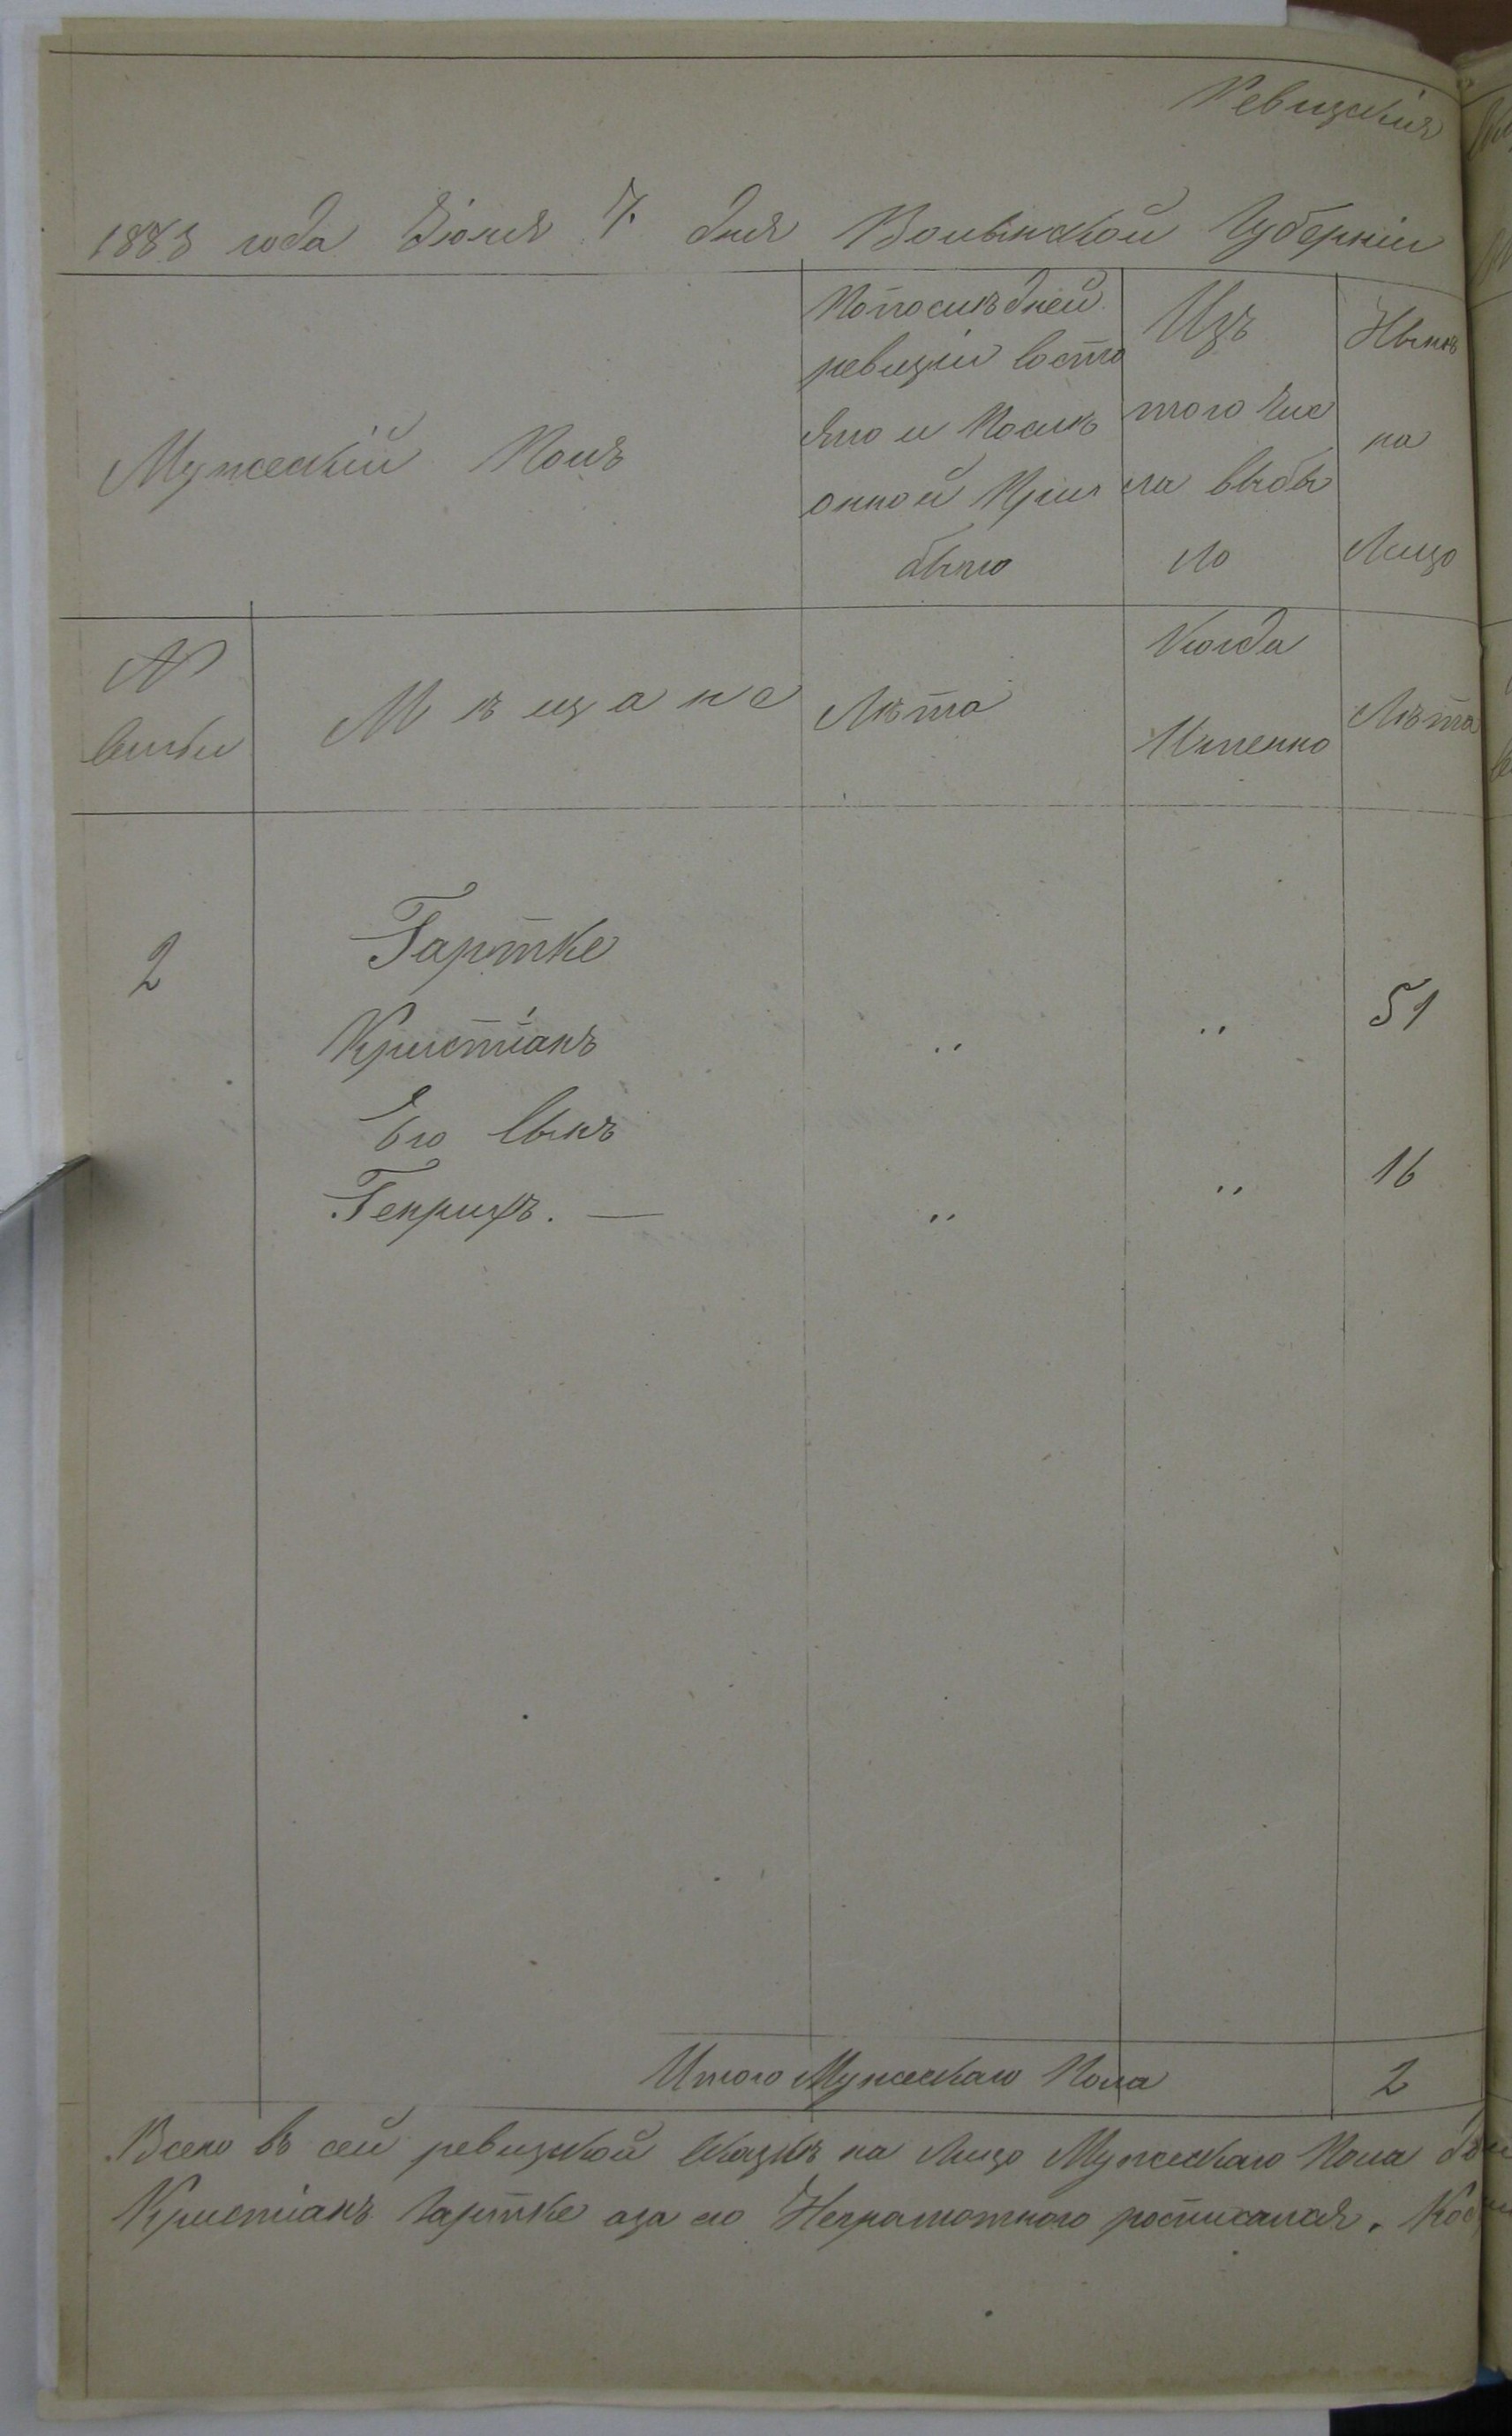 Ревизскія
1883 года Іюня 7. дня Волынской Губерніи
Мужескій Полъ
Попослѣдней
ревизіи состо
яло и Послѣ
онной При
было
Изъ
того Чис
ла выбы
ло
Нынѣ
на
Лицо
№
семьи
Мѣщане
Лѣта
Когда
Именно
Лѣта
2
Гартке
Кристіанъ
"
"
51
Его Сынъ
Генрихъ. —
"
"
16
Итого Мужескаго Пола
2
Всего въ сей ревизской Сказкѣ на Лицо Мужескаго Пола
Кристіанъ Гартке аза его Неграмотного росписался.